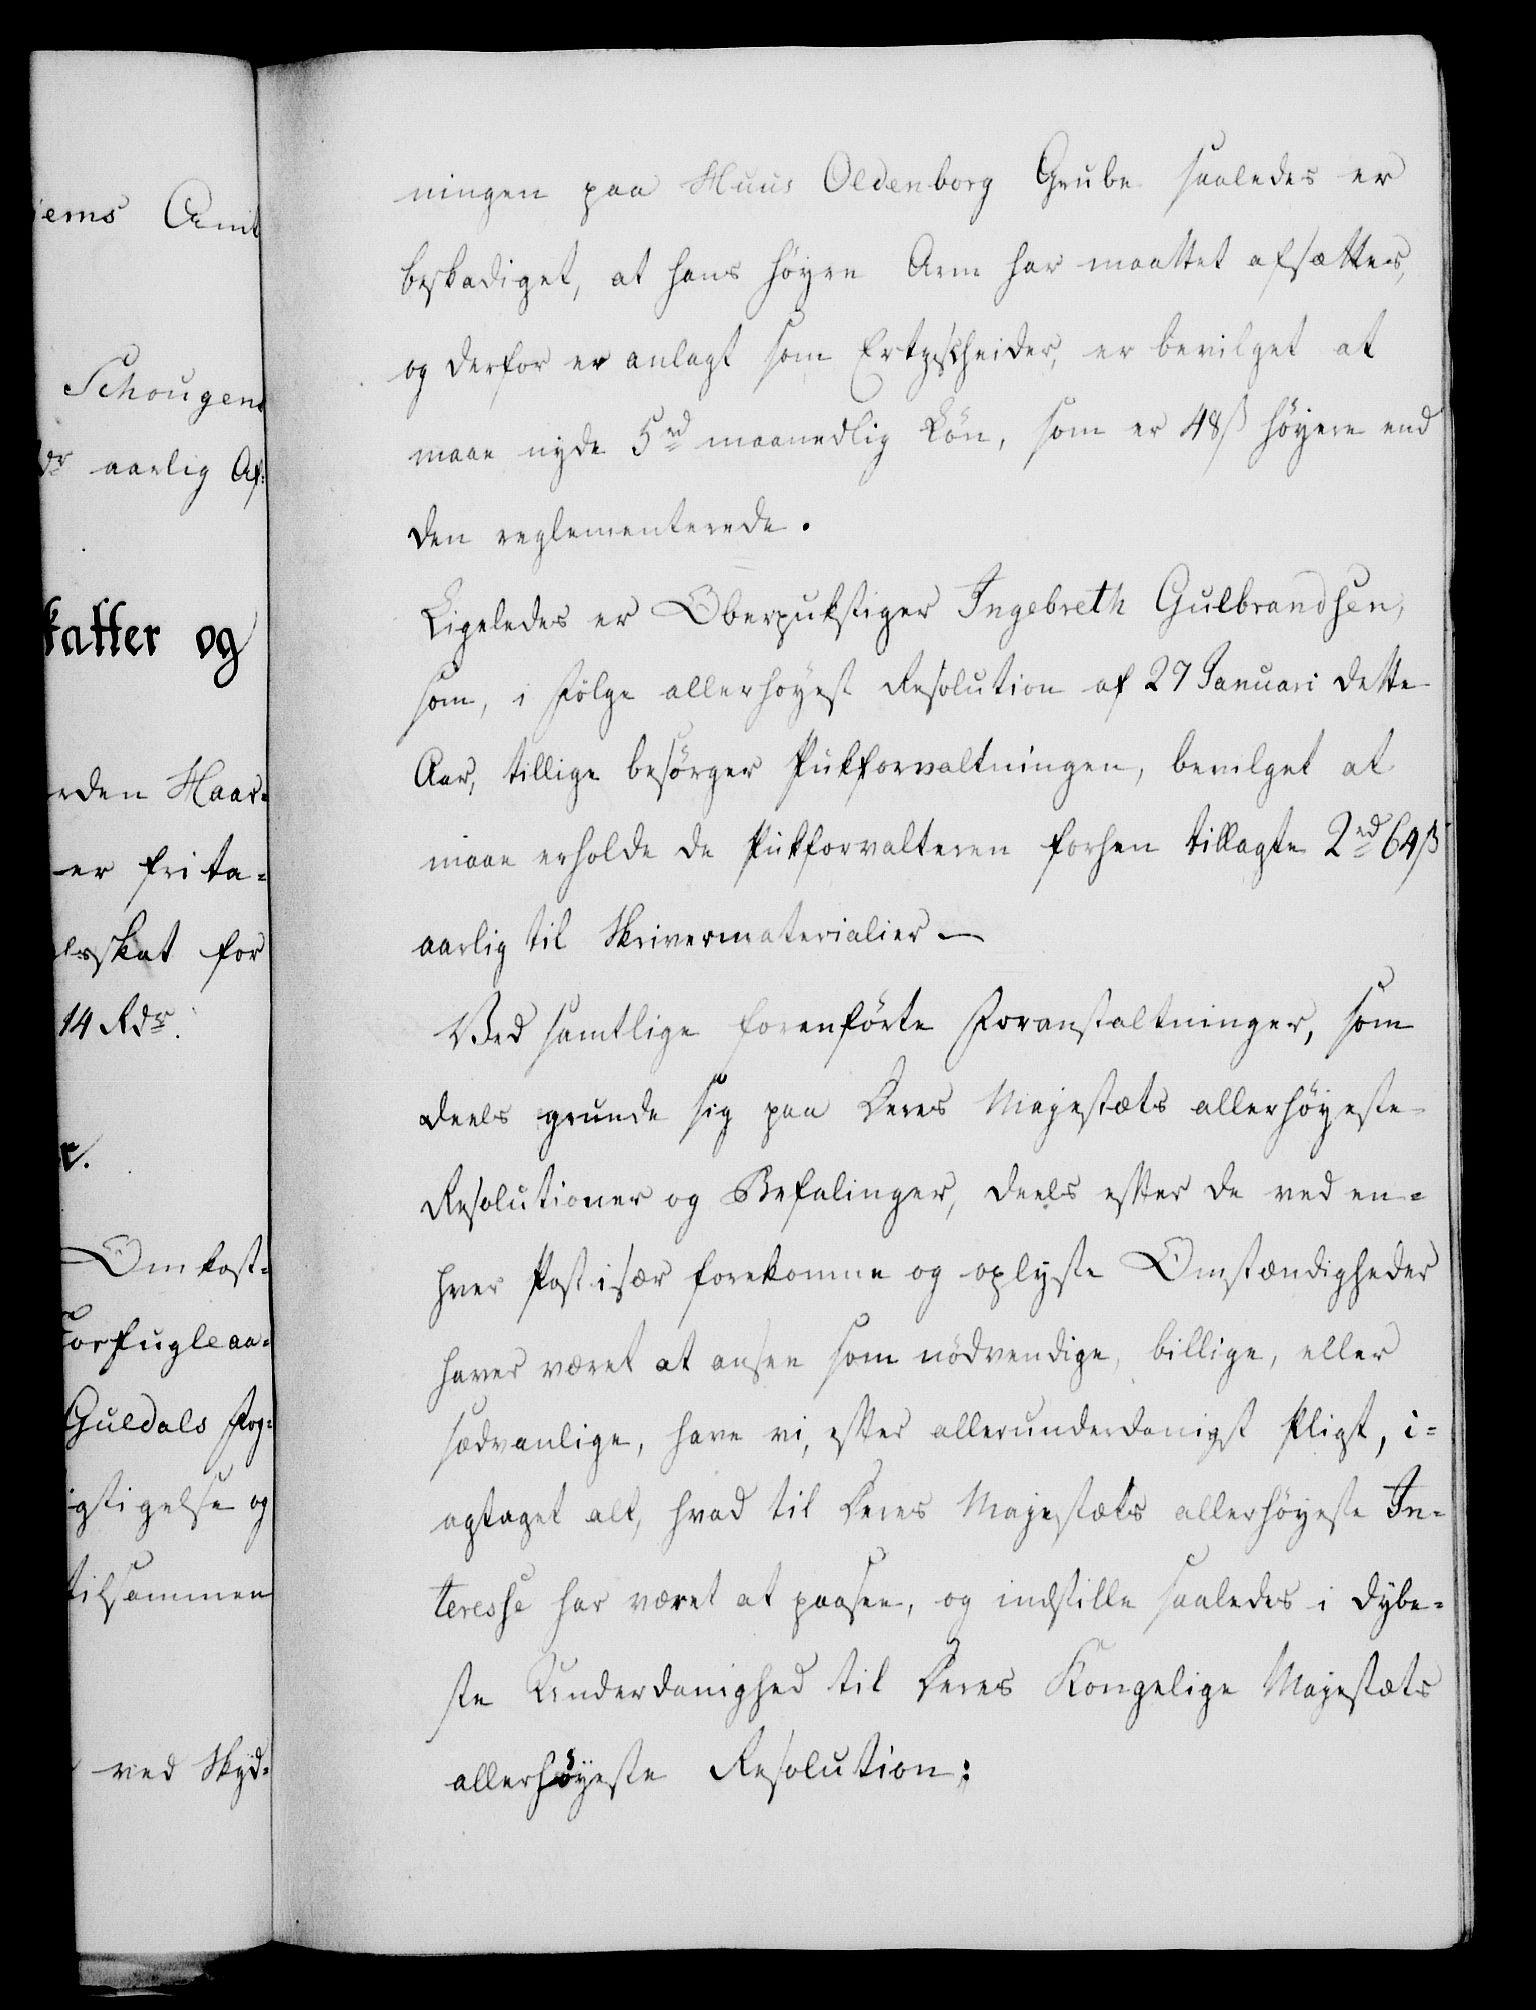 iems Amt
Schougens
dr aarlig Af:
katter og
rden Haar-
er frita-
lsskat for
14 Rdr.
r.
Omkost-
Torfugleaa-
Guldals Fog-
igtigelse og
tilsammen
ved Skyd-
ningen paa Huus Oldenborg Grube saaledes er
beskadiget, at hans höyre Arm har maattet afsættes,
og derfor er anlagt som Ertzscheider, er bevilget at
maae nyde 5 rd maanedlig Lön, som er 48 ß höyere end
den reglementerede.
Ligeledes er Oberpukstiger Ingebreth Gulbrandsen,
som, i Fölge allerhöyest Resolution af 27 Januari dette
Aar, tillige besörger Pukforvaltningen, bevilget at
maae erholde de Pukforvalteren forhen tillagte 2 rd 64 ß
aarlig til Skrivermaterialier —
Ved samtlige foranförte Foranstaltninger, som
deels grunde sig paa Deres Majestæts allerhöyeste
Resolutioner og Befalinger, deels efter de ved en-
hver Post især forekomne og oplyste Omstændigheder
haver været at ansee som nödvendige, billige, eller
sædvanlige, have vi, efter allerunderdanigst Pligt, i-
agtaget alt, hvad til Deres Majestæts allerhöyeste In-
teresse har været at paasee, og indstille saaledes i dybe-
ste Underdanighed til Deres Kongelige Majestæts
allerhöyeste Resolution: